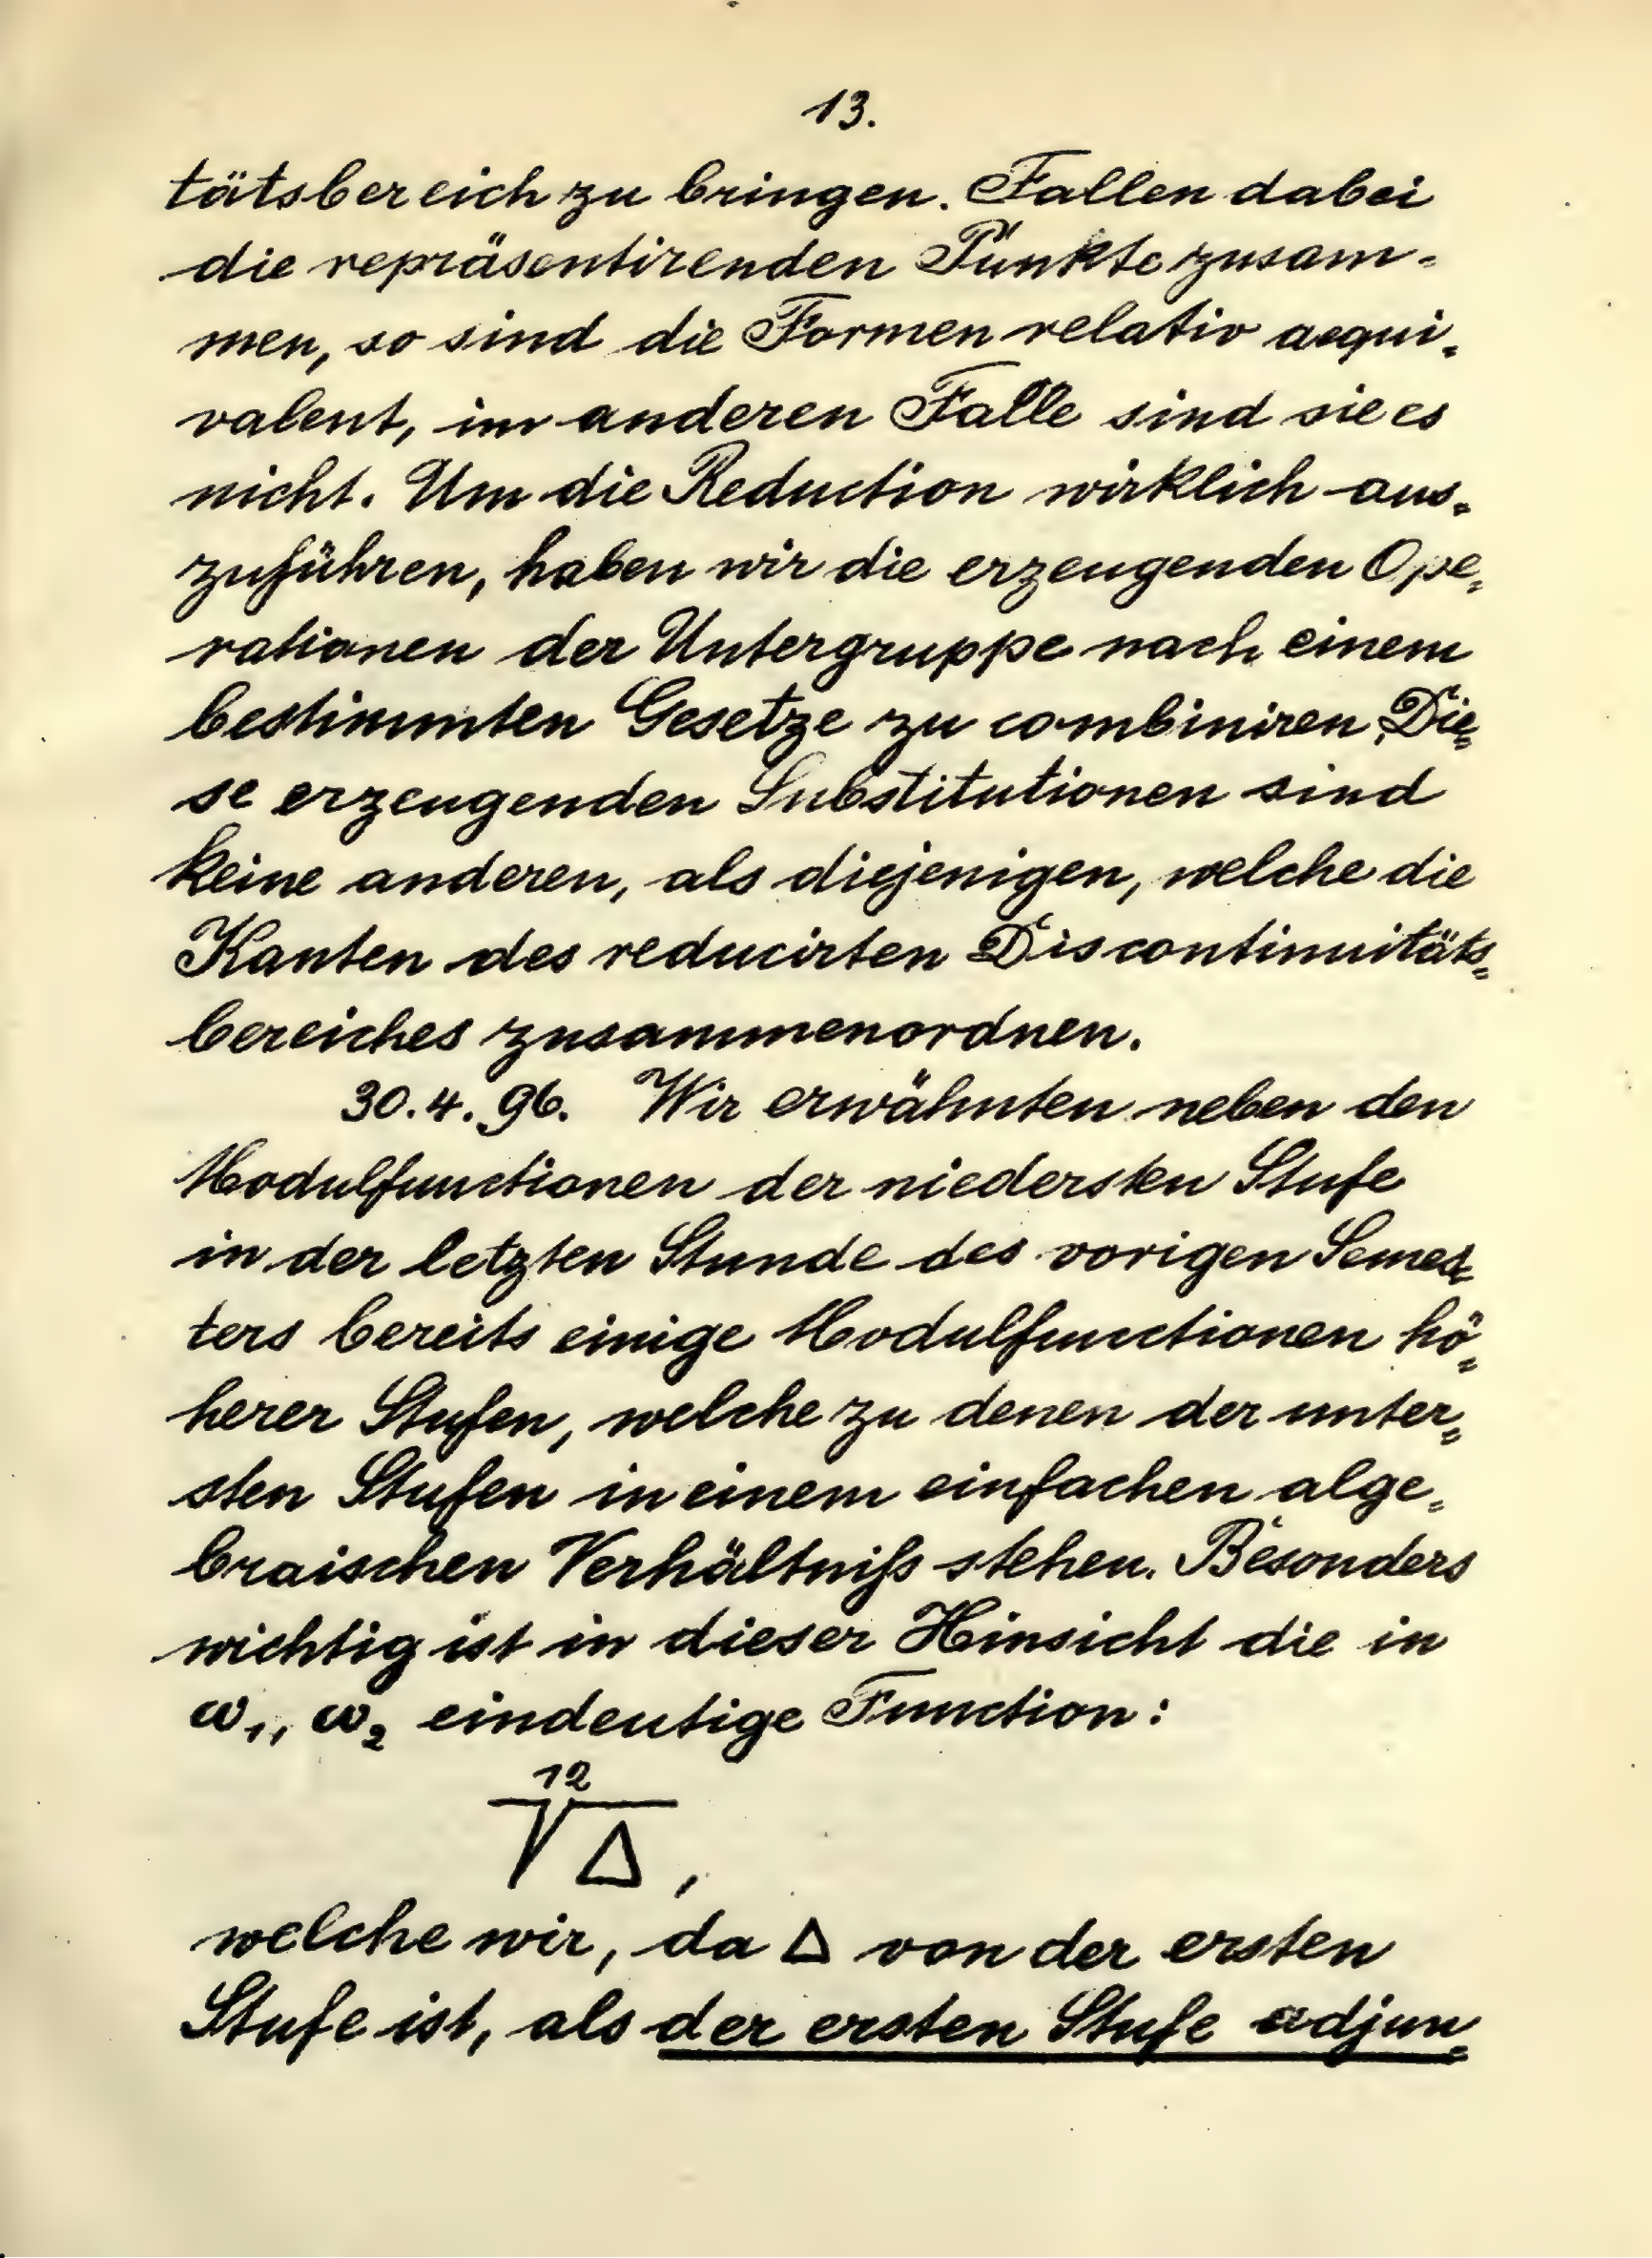 13.
tätsbereich zu bringen. Fallen dabei
die repräsentirenden Punkte zusam-
men, so sind die Formen relativ aequi-
valent, im anderen Falle sind sie es
nicht. Um die Reduction wirklich aus-
zuführen, haben wir die erzeugenden Ope-
rationen der Untergruppe nach einem
bestimmten Gesetze zu combiniren. Die-
se erzeugenden Substitutionen sind
keine anderen, als diejenigen, welche die
Kanten des reducirten Discontinuitäts-
bereiches zusammenordnen.
30.4.96. Wir erwähnten neben den
Modulfunctionen der niedersten Stufe
in der letzten Stunde des vorigen Semes-
ters bereits einige Modulfunctionen hö-
herer Stufen, welche zu denen der unter-
sten Stufen in einem einfachen alge-
braischen Verhältniss stehen. Besonders
wichtig ist in dieser Hinsicht die in
ω₁, ω₂ eindeutige Function:
¹²√Δ,
welche wir, da Δ von der ersten
Stufe ist, als der ersten Stufe adjun-